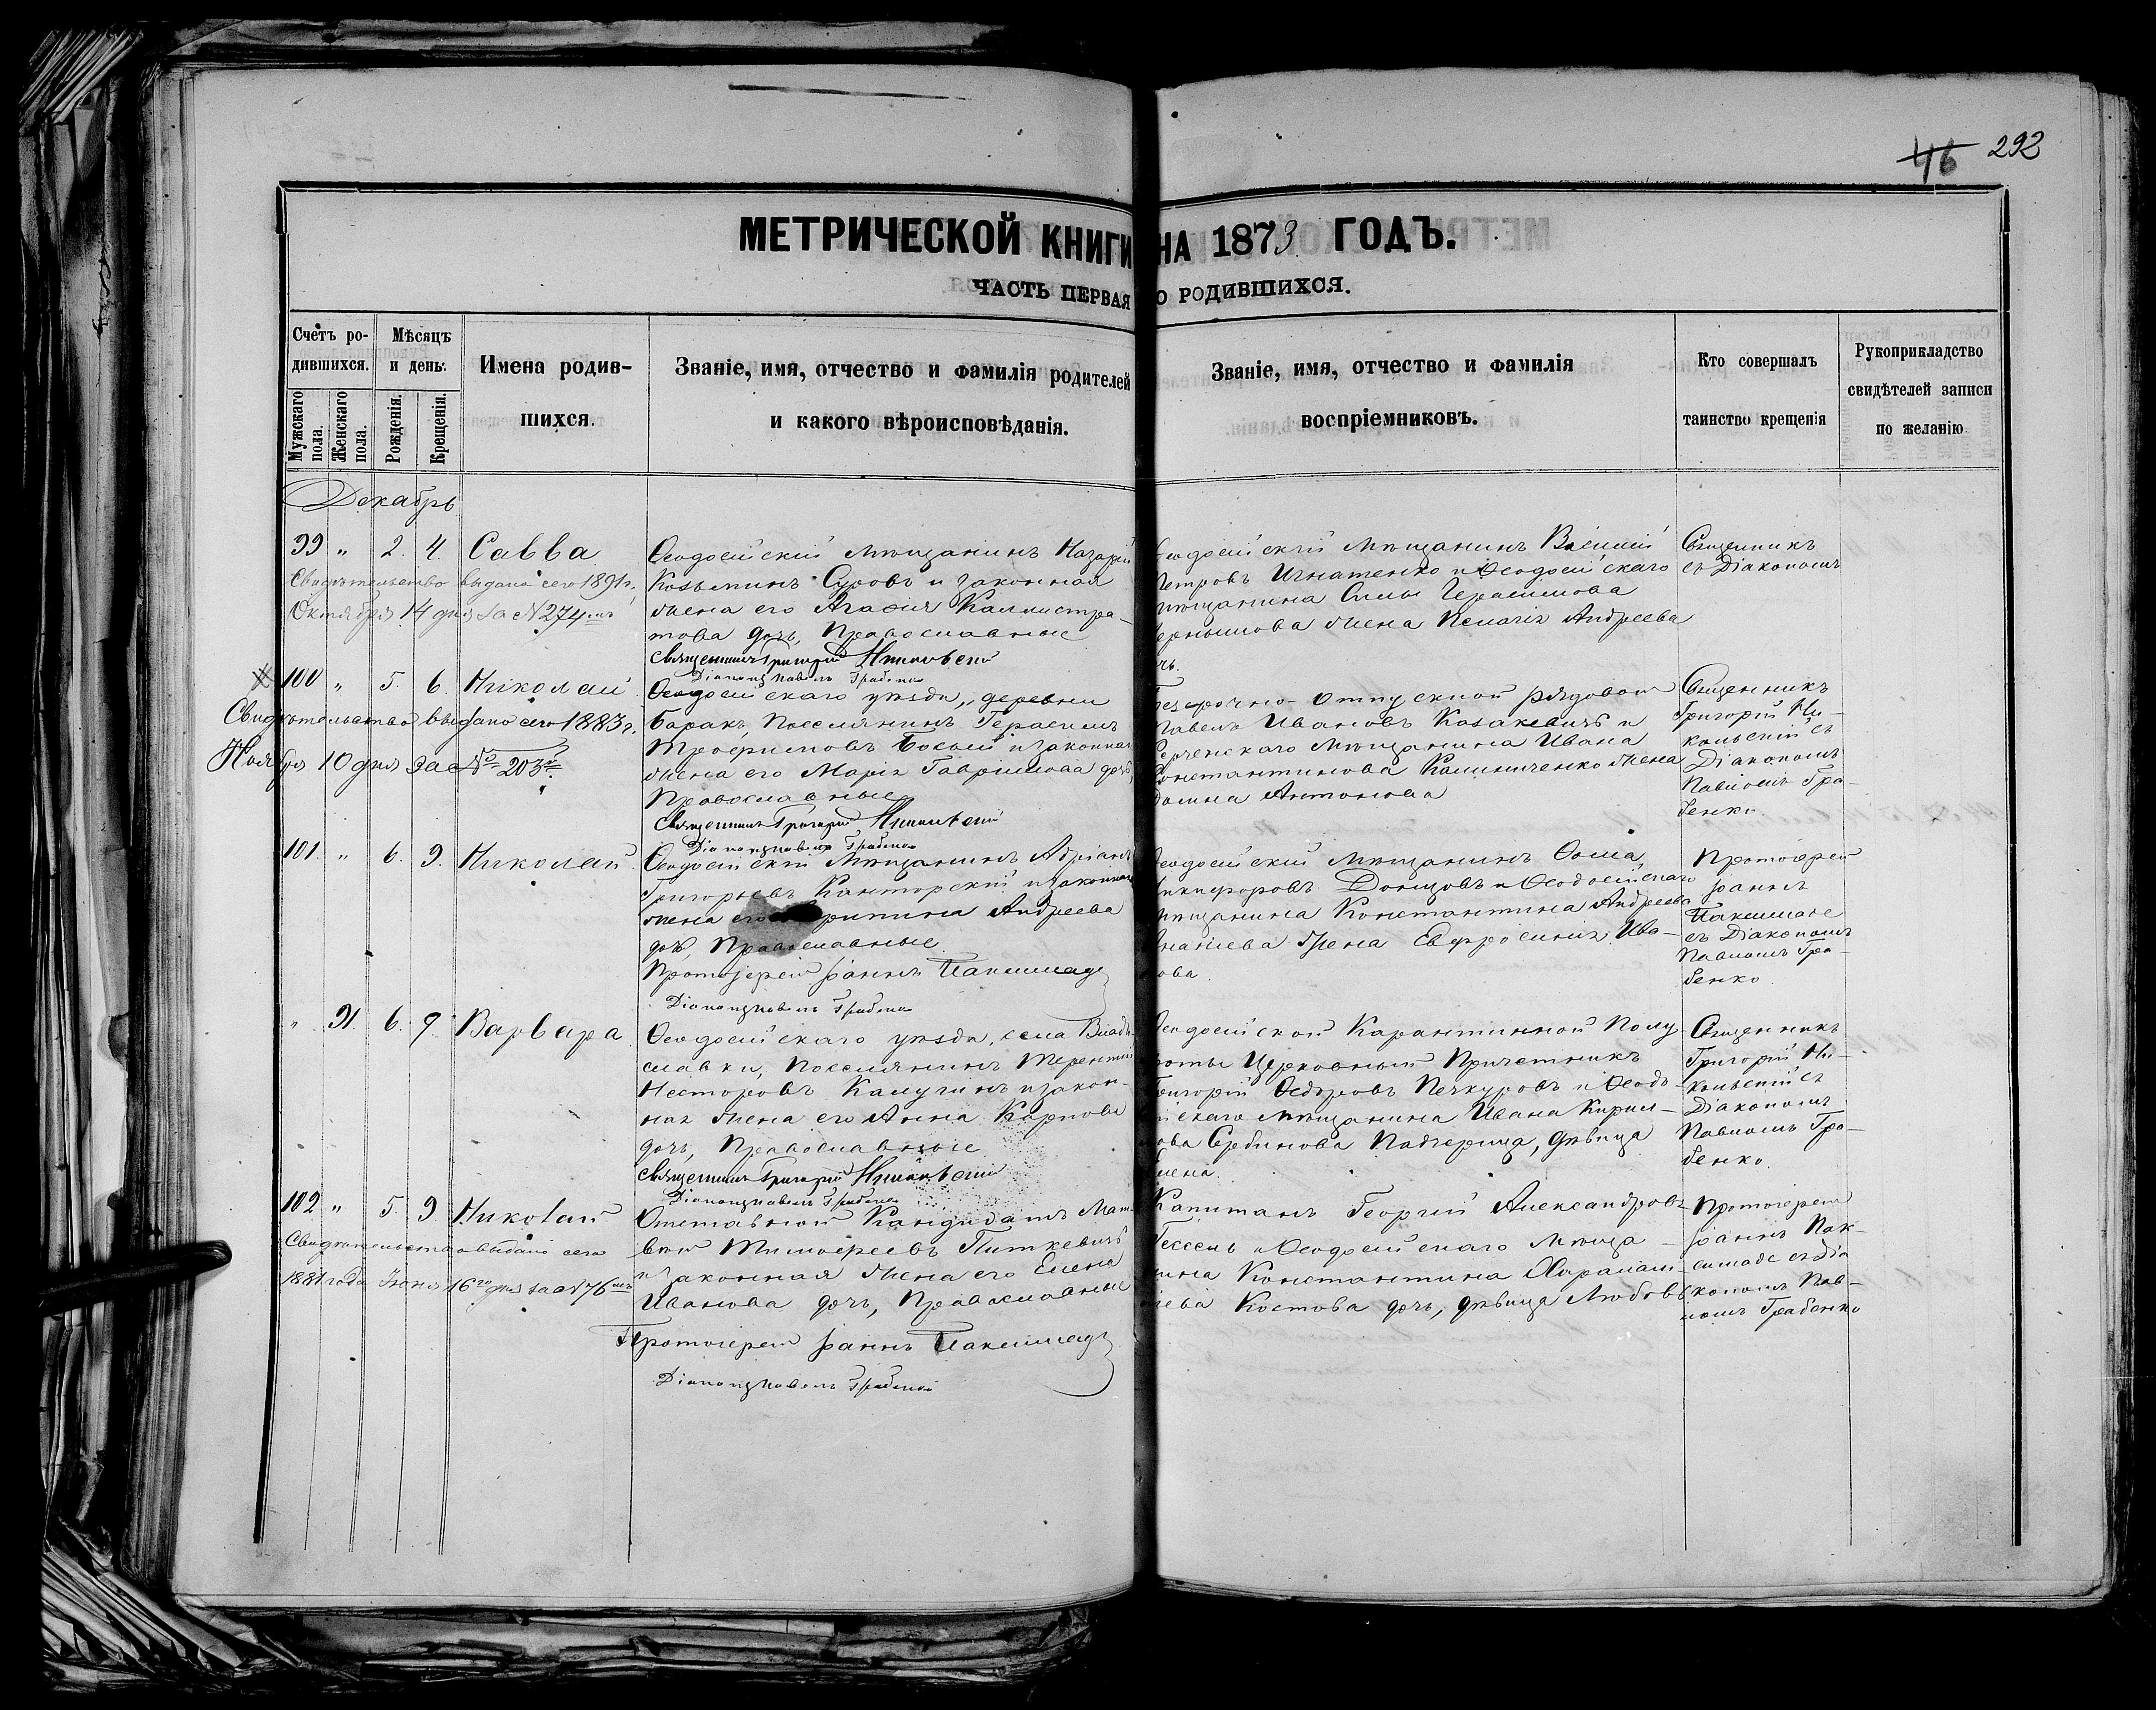 46 292
МЕТРИЧЕСКОЙ КНИГИ НА 1873 ГОДЪ.
ЧАСТЬ ПЕРВАЯ О РОДИВШИХСЯ.
Счетъ ро-
дившихся.
Мужскаго пола.
Женскаго пола.
Мѣсяцъ
и день.
Рожденія.
Крещенія.
Имена родив-
шихся.
Званіе, имя, отчество и фамилія родителей
и какого вѣроисповѣданія.
Званіе, имя, отчество и фамилія
воспріемниковъ.
Кто совершалъ
таинство крещенія
Рукоприкладство
свидѣтелей записи
по желанію
Декабрь
99 " 2. 4. Савва
Свидѣтельство выдано сего 1891 г.
Октября 14 дня за №274
Ѳеодосійскій мѣщанинъ Назарій
Козьминъ Суховъ и законная
жена его Агафія Каллистра-
това дочь, Православные
Священникъ Григорій Никольскій
Діаконъ Павелъ Грабенко
Ѳеодосійскій мѣщанинъ Василій
Петровъ Игнатенко и Ѳеодосійскаго
мѣщанина Симы Герасимова
жена Пелагія Андреева
Священникъ
съ Діакономъ
100 " 5. 6. Николай
Свидѣтельство выдано сего 1883 г.
Ноября 10 дня за № 203
Ѳеодосійскаго уѣзда, деревни
Баракъ, Поселянинъ Герасимъ
Трофимовъ Босый и законная
жена его Марія Гаврилова дочь,
Православные
Священникъ Григорій Никольскій
Діаконъ Павелъ Грабенко
Безсрочно-отпускной рядовой
Павелъ Ивановъ Козакевичъ и
Керченскаго мѣщанина Ивана
Константинова Калиниченко жена
Антонова
Священникъ
Григорій Ни-
кольскій съ
Діакономъ
Павломъ Гра-
бенко.
101. " 6. 9. Николай
Ѳеодосійскій мѣщанинъ Адріанъ
Григорьевъ Канторскій и законная
жена его Андреева
дочь, Православные.
Протоіерей Іоаннъ Паксимаде
Діаконъ Павелъ Грабенко
Ѳеодосійскій мѣщанинъ Ѳома
Никифоровъ Донцовъ и Ѳеодосійскаго
мѣщанина Константина Андреева
жена Евфросинія Ива-
нова.
Протоіерей
Іоаннъ
Паксимаде
съ Діакономъ
Павломъ Гра-
бенко.
" 91. 6. 9. Варвара
Ѳеодосійскаго уѣзда, села Влади-
славки, Поселянинъ Терентій
Несторовъ Калугинъ и закон-
ная жена его Анна Карпова
дочь, Православные
Священникъ Григорій Никольскій
Діаконъ Павелъ Грабенко
Ѳеодосійской Карантинной Полу-
роты Церковный Причетникъ
Григорій Ѳедоровъ Печкуровъ и Ѳеодо-
сійскаго мѣщанина Ивана Кирил-
лова Сербинова Падчерица, дѣвица
Елена.
Священникъ
Григорій Ни-
кольскій съ
Діакономъ
Павломъ Гра-
бенко.
102 " 5. 9. Николай
Свидѣтельство выдано сего
188 года Іюня 16го дня за №176
Отставной Кандидатъ Мат-
вѣй Тимофеевъ Питкевичъ
и законная жена его Елена
Иванова дочь, Православные
Протоіерей Іоаннъ Паксимаде
Діаконъ Павелъ Грабенко
Капитанъ Георгій Александров-
Гессенъ и Ѳеодосійскаго мѣща-
нина Константина Харалам-
піева Костова дочь, дѣвица Любовь
Протоіерей
Іоаннъ Пак-
симаде съ Діа
кономъ Пав-
ломъ Грабенко